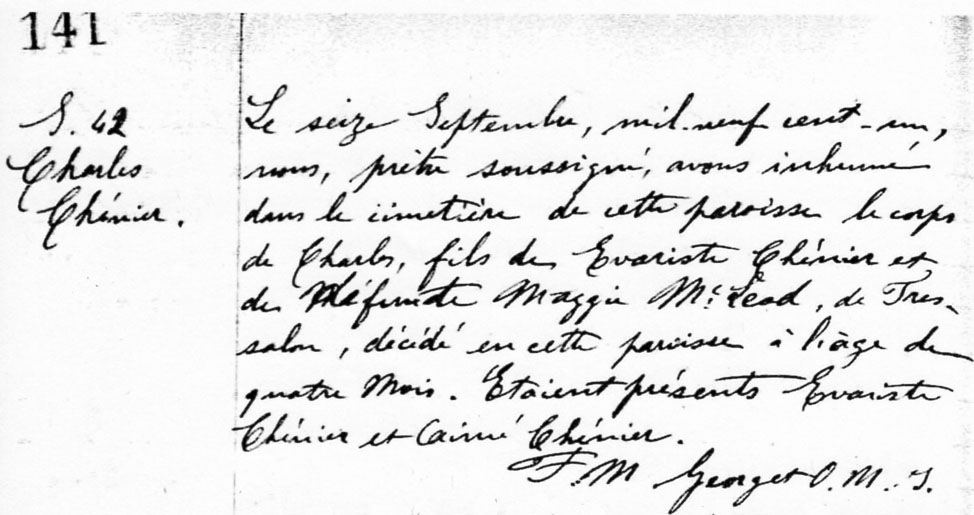 141
S. 42
Charles
Chénier.
Le seize Septembre, mil-neuf-cent-un,
nous, prêtre soussigné, avons inhumé
dans le cimetière de cette paroisse le corps
de Charles, fils de Evariste Chénier et
de défunte Maggie McLeod, de Tres-
salon, décédé en cette paroisse à l'âge de
quatre Mois. Etaient présents Evariste
Chénier et Aimé Chénier.
F. M Georget O. M. I.